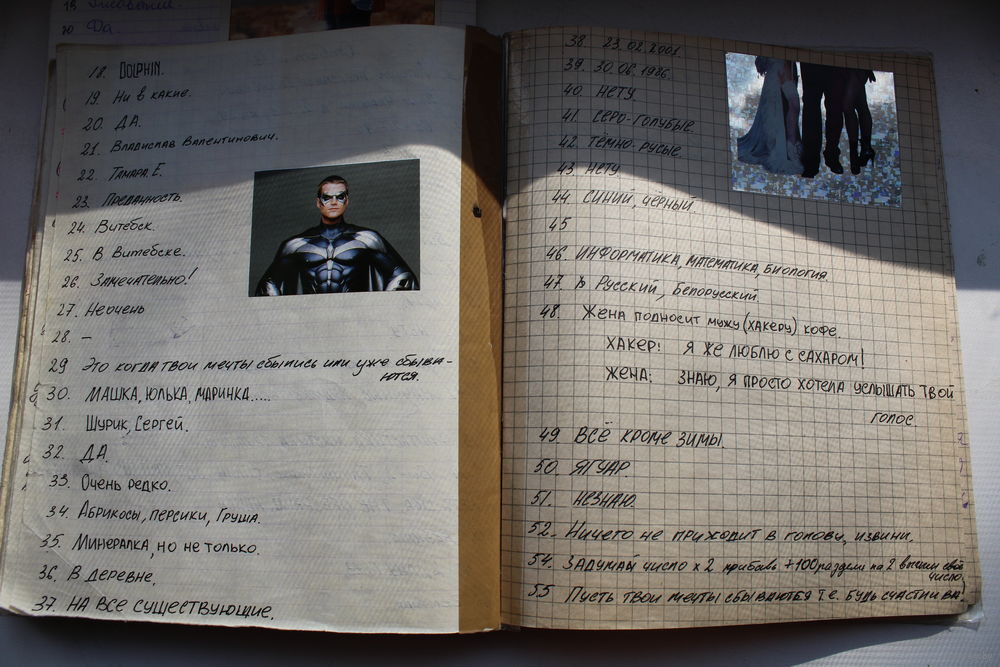 20 Да
18. DOLPHIN.
19. Ни в какие.
20. ДА.
21. Владислав Валентинович.
22. Тамара Е.
23. Преданность.
24. Витебск.
25. В Витебске.
26. Замечательно!
27. Неочень
28. —
29 Это когда твои мечты сбылись или уже сбыва-
ются.
30. МАШКА, ЮЛЬКА, МАРИНКА.....
31. Шурик, Сергей.
32. ДА.
33. Очень редко.
34. Абрикосы, персики, Груша.
35. Минералка, но не только.
36. В деревне.
37. НА ВСЕ СУЩЕСТВУЮЩИЕ.
38. 23.02.2001
39. 30.06.1986.
40. НЕТУ.
41. СЕРО-ГОЛУБЫЕ.
42. ТЁМНО-РУСЫЕ.
43. НЕТУ
44. СИНИЙ, ЧЁРНЫЙ.
45
46. ИНФОРМАТИКА, МАТЕМАТИКА, БИОЛОГИЯ.
47. Русский, Белорусский.
48. Жена подносит мужу (хакеру) кофе.
ХАКЕР: Я ЖЕ ЛЮБЛЮ С САХАРОМ!
ЖЕНА: ЗНАЮ, Я ПРОСТО ХОТЕЛА УСЛЫШАТЬ ТВОЙ
ГОЛОС.
49. ВСЁ КРОМЕ ЗИМЫ.
50. ЯГУАР.
51. НЕЗНАЮ.
52. Ничего не приходит в голову, извини.
54. ЗАДУМАЙ ЧИСЛО x 2 прибавь +100 раздели на 2 вычти своё
число.
55 Пусть твои мечты сбываются т.е. будь счастлива!